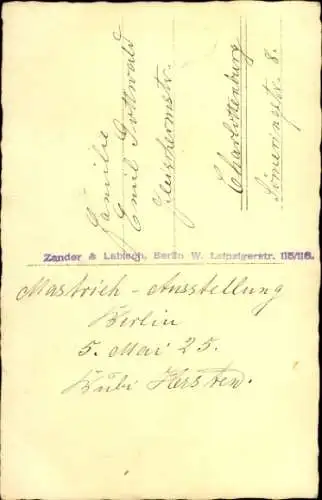 Familie
Emil Gottwald
Fleischermstr.
Charlottenburg
Sömeringstr. 8.
Zander & Labisch, Berlin W. Leipzigerstr. 115/116.
Mastvieh - Ausstellung
Berlin
5. Mai 25.